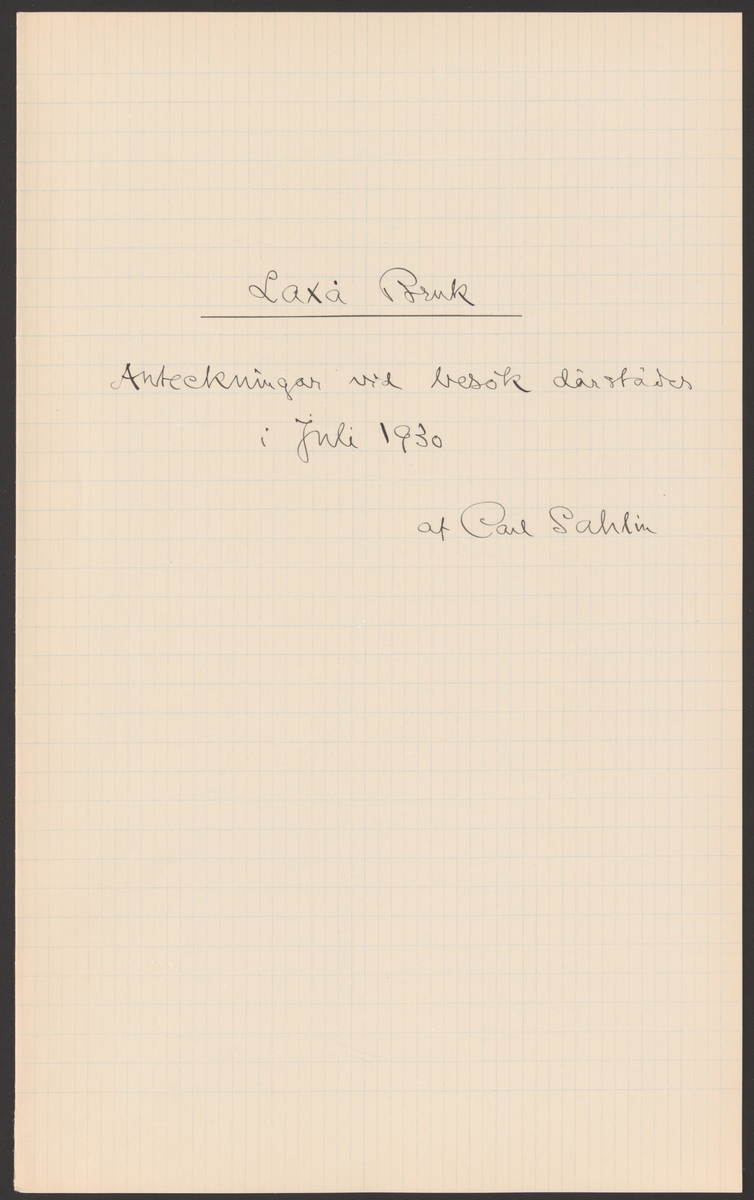 Laxå Bruk
Anteckningar vid besök därstädes
i Juli 1930
af Carl Sahlin